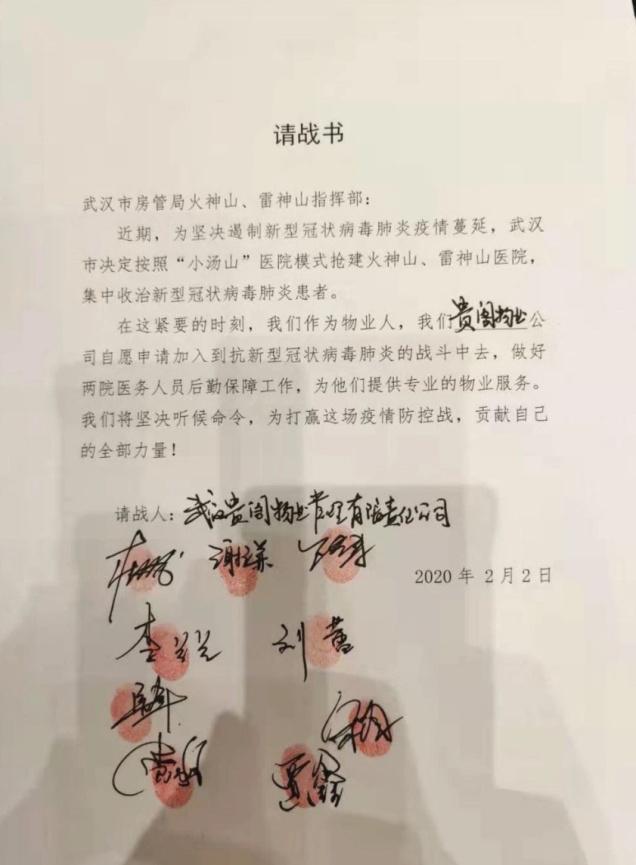 请战书
武汉市房管局火神山、雷神山指挥部：
近期，为坚决遏制新型冠状病毒肺炎疫情蔓延，武汉
市决定按照“小汤山”医院模式抢建火神山、雷神山医院，
集中收治新型冠状病毒肺炎患者。
在这紧要的时刻，我们作为物业人，我们贵阁物业公
司自愿申请加入到抗新型冠状病毒肺炎的战斗中去，做好
两院医务人员后勤保障工作，为他们提供专业的物业服务。
我们将坚决听候命令，为打赢这场疫情防控战，贡献自己
的全部力量！
请战人：武汉贵阁物业管理有限责任公司
2020 年 2 月 2 日
刘茜
贾鑫